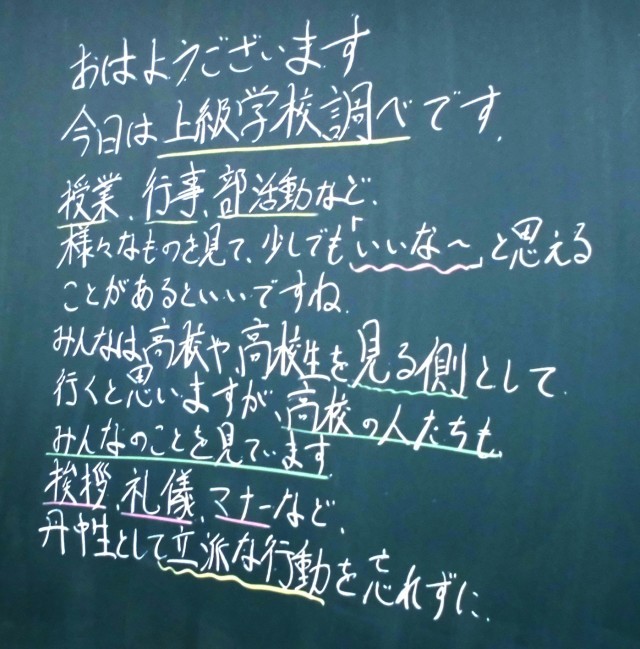 おはようございます
今日は上級学校調べです.
授業、行事、部活動など、
様々なものを見て、少しでも「いいな〜」と思える
ことがあるといいですね.
みんなは、高校や、高校生を見る側として
行くと思いますが、高校の人たちも
みんなのことを見ています
挨拶、礼儀、マナーなど、
丹中生として立派な行動を忘れずに.